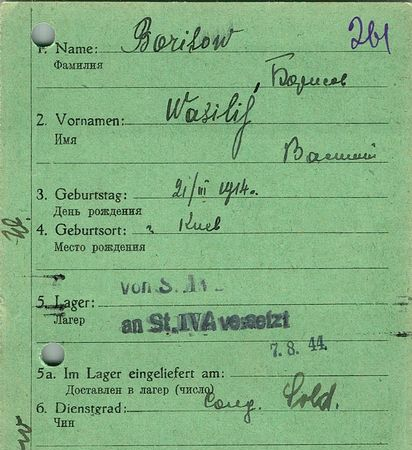 1. Name: Borisow 261
Фамилия
Борисов
2. Vornamen: Wasilij
Имя
Василий
3. Geburtstag: 21/III 1914.
День рождения
4. Geburtsort: Киев
Место рождения
von S.
5. Lager:
Лагер
an St. IVA versetzt
7. 8. 44.
5a. Im Lager eingeliefert am:
Доставлен в лагер (число)
6. Dienstgrad: Солд. Sold.
Чин